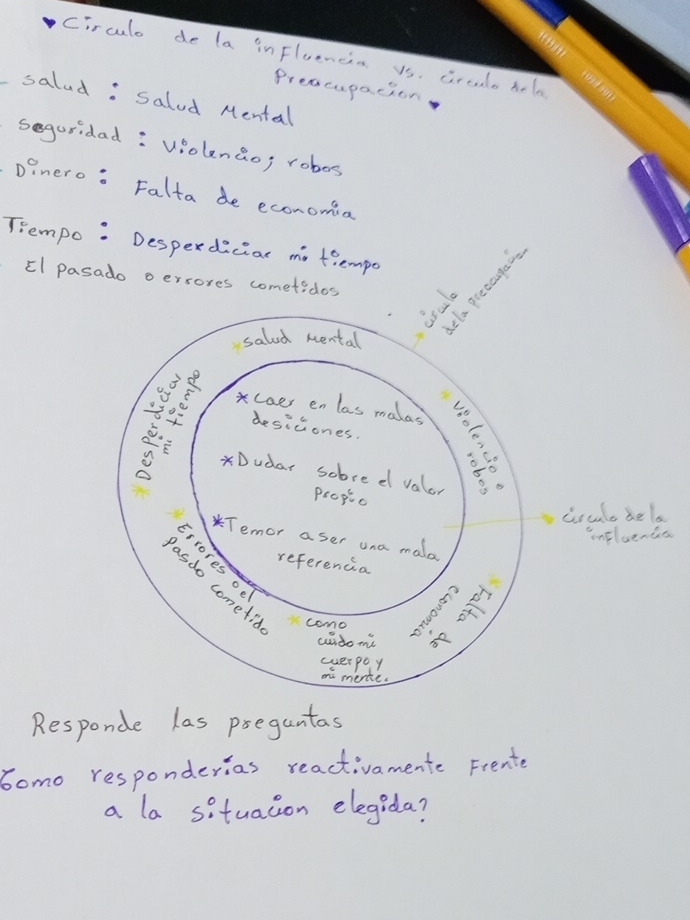 ♥ Circulo de la influencia vs. circulo de la
Preacupacion ♥
- salud : Salud Mental
- seguridad : Violencio; robos
- Dinero : Falta de economia
Tiempo : Desperdiciar mi tiempo
- El pasado o errores cometidos
circulo
de la preocupacion
*salud mental
*Violencio o
robos
*Desperdiciar
mi tiempo
*caer en las malas
desiciones.
*Dudar sobre el valor
propio
*Temor a ser una mala
referencia
circulo de la
influencia
*Errores o el
pasdo cometido
*como
cuido mi
cuerpo y
mi mente.
*Falta de
economia
Responde las preguntas
Como responderías reactivamente Frente
a la situacion elegida?